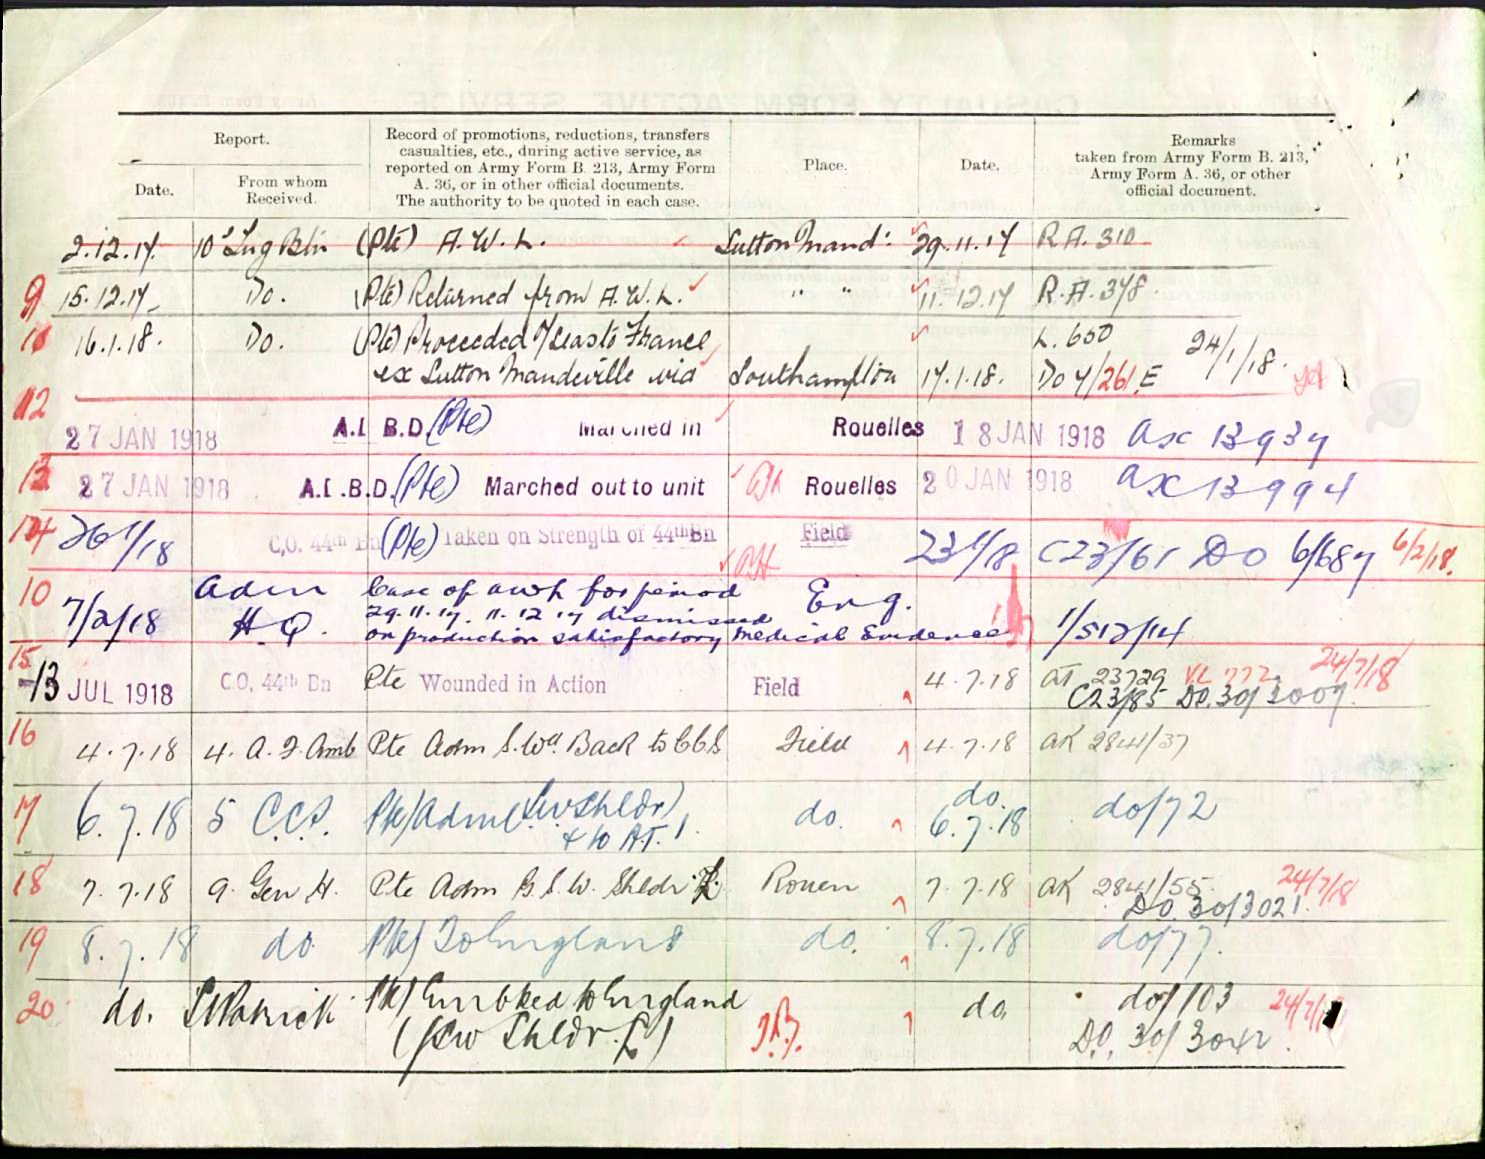 Report.
Date.
From whom Received.
Record of promotions, reductions, transfers
casualties, etc., during active service, as
reported on Army Form B. 213, Army Form
A. 36, or in other official documents.
The authority to be quoted in each case.
Place.
Date.
Remarks
taken from Army Form B. 213,
Army Form A. 36, or other
official document.
2.12.17. 10 Trg Btn (Pte) A.W.L. Sutton Mand: 29.11.17 R.A. 310
9 15.12.17 Do. (Pte) Returned from A.W.L. " " 11.12.17 R.A. 378.
11 16.1.18. Do. (Pte) Proceeded O/seas to France L. 650
ex Sutton Mandeville via Southampton 17.1.18. Do 4/261 E 24/1/18.
12 27 JAN 1918 A.I B.D. (Pte) Marched in Rouelles 18 JAN 1918 ax 13937
13 27 JAN 1918 A.I.B.D. (Pte) Marched out to unit Rouelles 20 JAN 1918 ax 13994
14 26/1/18 C.O. 44th Bn (Pte) Taken on Strength of 44th Bn Field 23/1/18 C23/61 DO 6/687 6/2/18.
10 7/2/18 Adm H.Q. Case of awl for period
29.11.17. 11.12.17 dismissed Eng.
on production satisfactory medical Evidence 1/512/14
15 13 JUL 1918 C.O. 44th Bn Pte Wounded in Action Field 4.7.18 AT 23729 VL 772 24/7/18
C23/85 DO. 30/3007.
16 4.7.18 4. A. F. Amb Pte Adm S.Wd. Back to CCS Field 4.7.18 AK 2841/37
17 6.7.18 5 C.C.S. Pte/Adm (SW Shldr) do. do. do/72
& to A.T. 1. 6.7.18
18 7.7.18 9. Gen H. Pte Adm G.S.W. Shldr. L Rouen 7.7.18 AK 2841/55. 24/7/18
DO. 30/3021.
19 8.7.18 do Pte/ To England do. 8.7.18 do/77.
20 do. St Patrick Pte/ Embked to England do do/103 24/7/18
(GSW Shldr. L) DO. 30/3042.